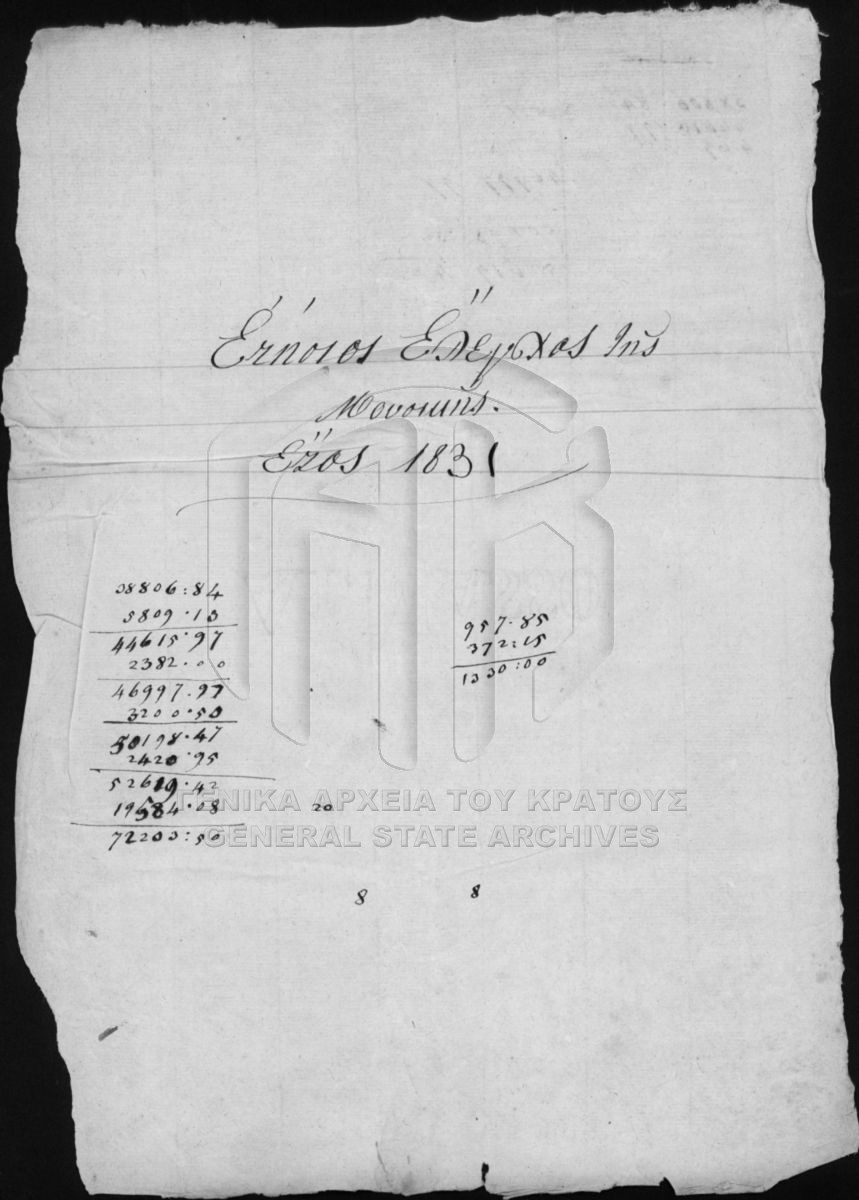 Ἐτήσιος Ἔλεγχος τῆς
Μουσικῆς.
Ἔτος 1831
38806:84
5809.13
44615.97
2382.00
46997.97
3200.50
50198.47
2420.95
52619.42
19584.08
72203:50
957.85
372:15
1330:00
20
8 8
ΓΕΝΙΚΑ ΑΡΧΕΙΑ ΤΟΥ ΚΡΑΤΟΥΣ
GENERAL STATE ARCHIVES